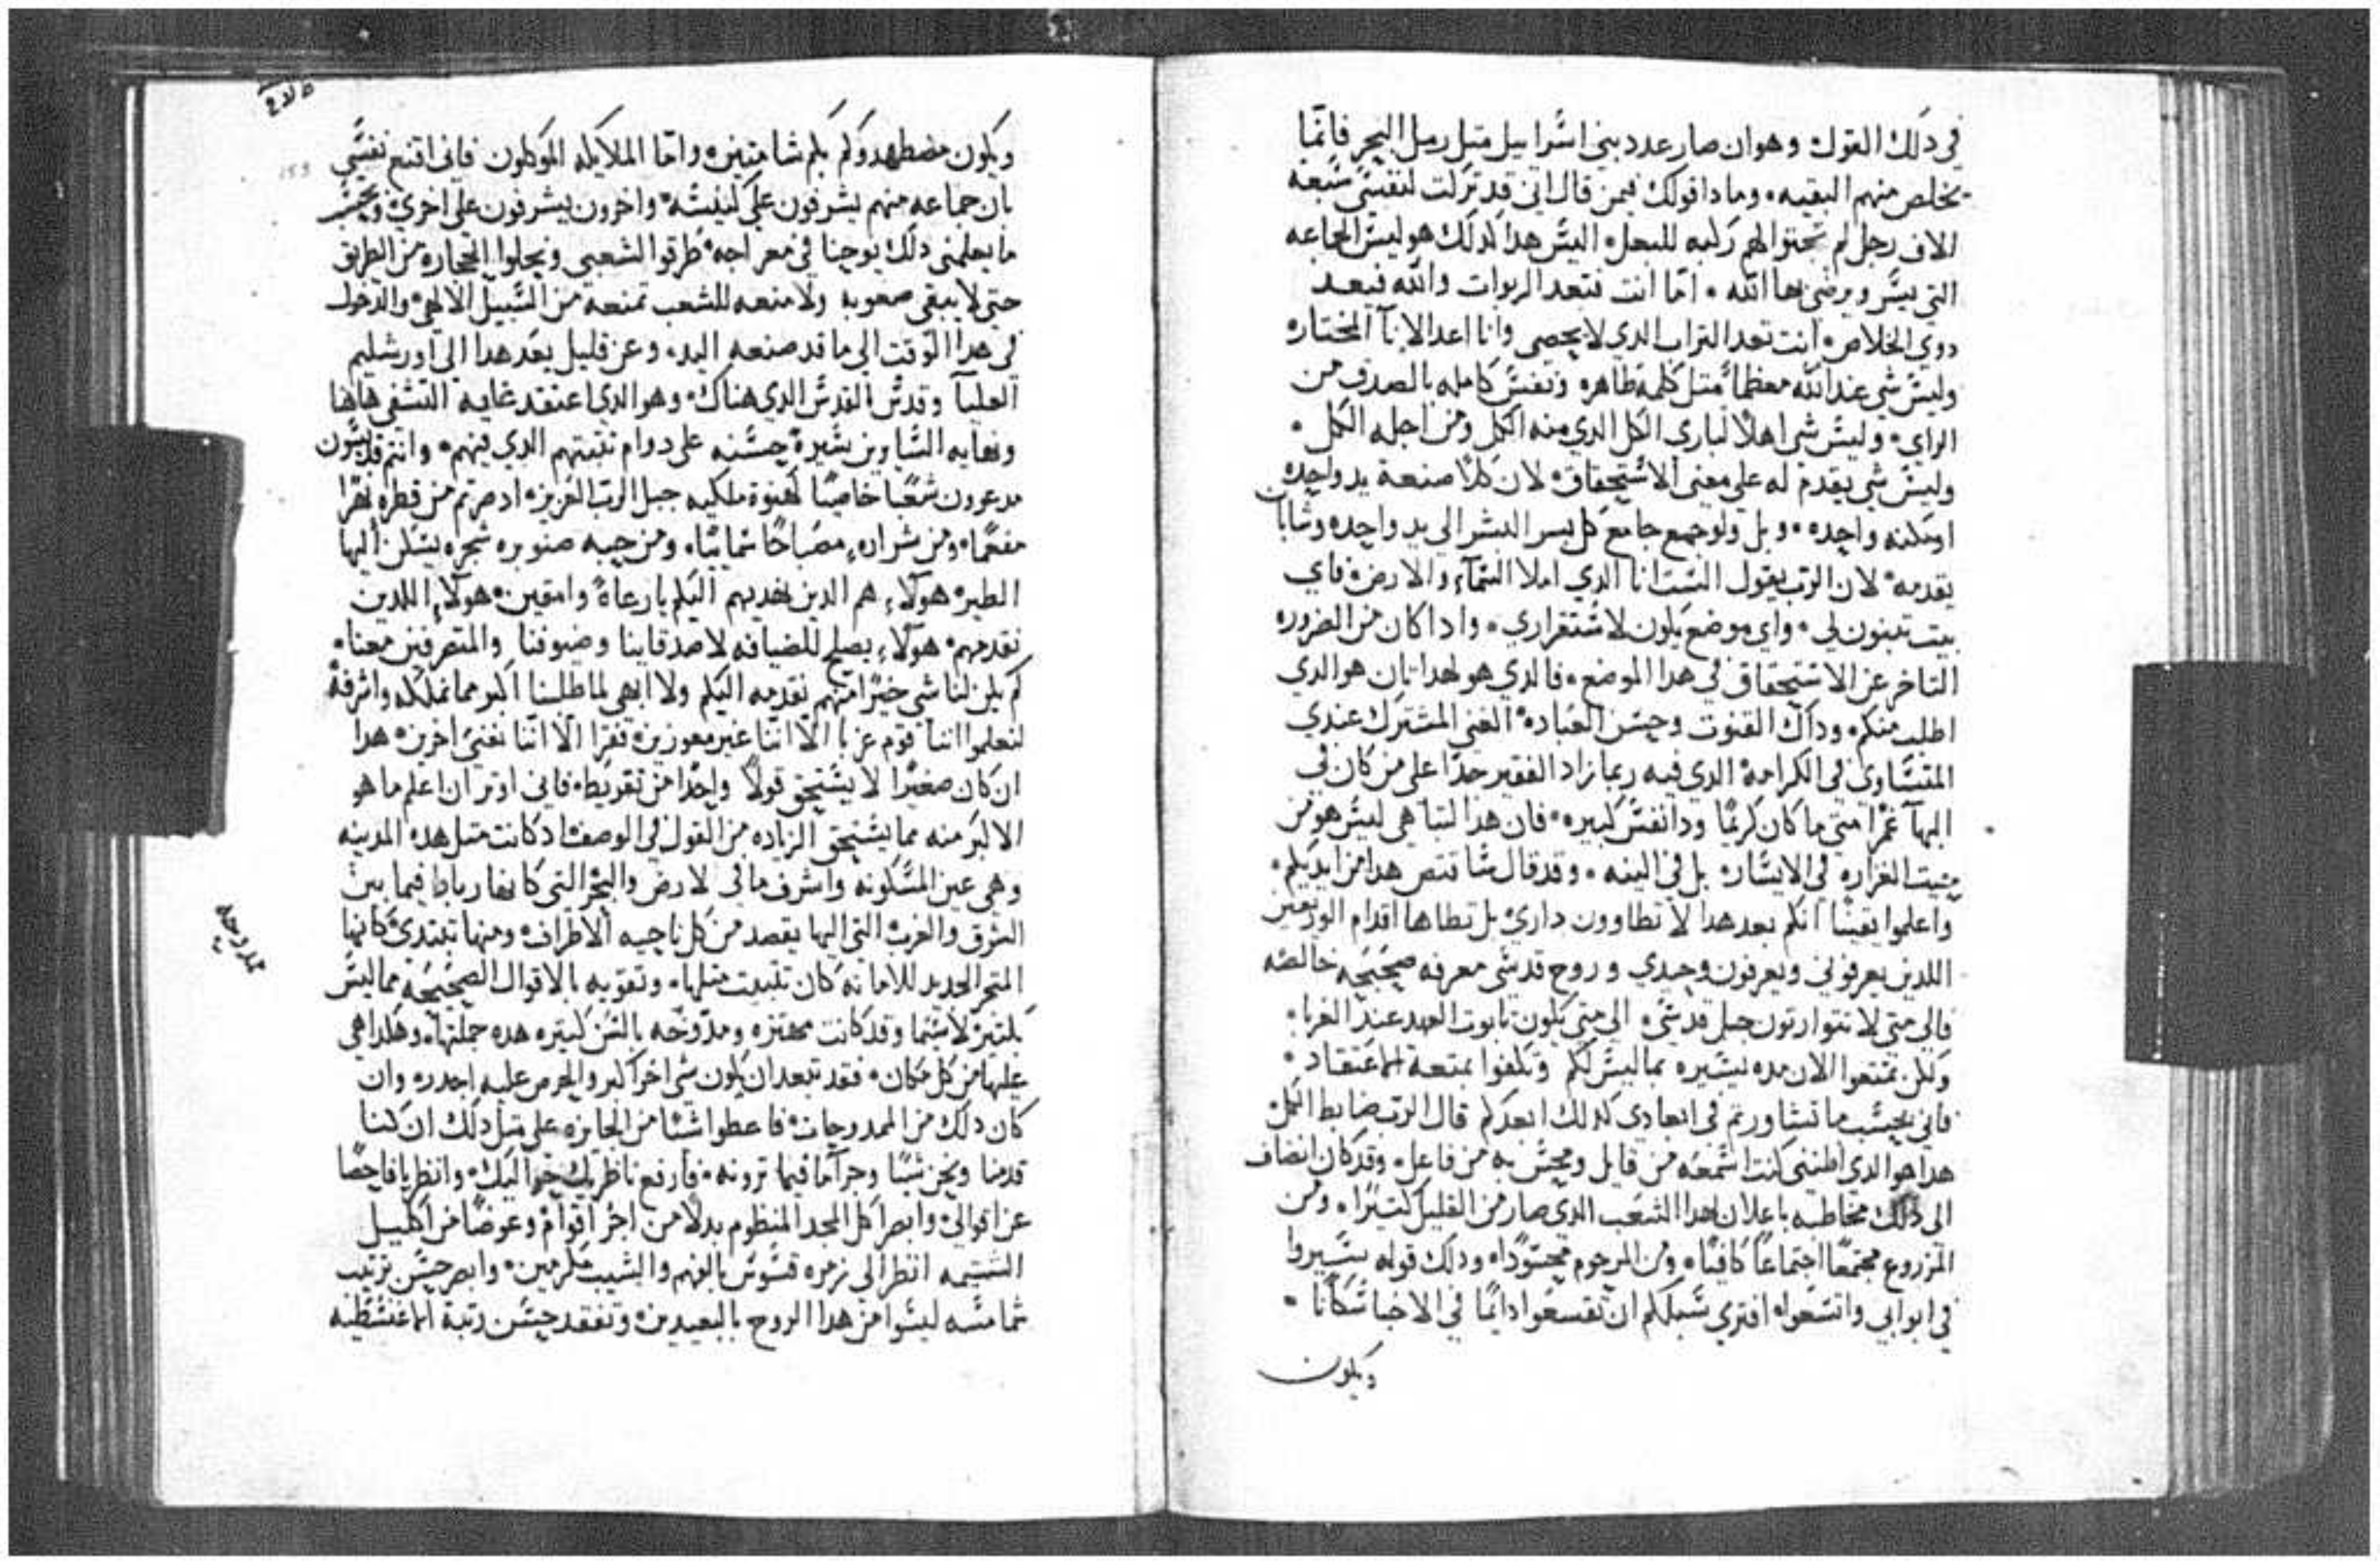 في دلك القول وهو ان صار عدد بني اسراييل متل رمل البحر فانما
يخلص منهم البقيه، وما دا قولك فيمن قال اني قد تركت لنفسي سبعه
الاف رجل لم تحنوا لهم ركبه للبعل، اليس هدا كدلك هو ليس الجماعه
التي يسر ويرضى بها الله، اما انت فتعد الربوات والله فيعد
دوي الخلاص، انت تعد التراب الدي لا يحصى وانا اعد الانآ المختاره
وليس شي عند الله معظماً متل كلمه طاهره ونفس كامله بالصدق من
الراي، وليس شي اهلاً لباري الكل الدي منه الكل ومن اجله الكل،
وليس شي يقدم له على معنى الاستحقاق لان كلا صنعة يد واحده
او مكنه واحده، وبل ولو جمع جامع كل يسر البشر الى يد واحده وشابان
يقدمه، لان الرب يقول الست انا الدي املا السمآء والارض، فاي
بيت تبنون لي، واي موضع يكون لاستقراري، وادا كان من الضروره
التاخر عن الاستحقاق في هدا الموضع، فالدي هو لهدا تان هو الدي
اطلب منكم، وداك القنوت وحسن العباده الغنى المشترك عندي
المتساوي في الكرامه الدي فيه ربما زاد الفقير جدًا على من كان في
البهآ غمرًا متى ما كان كريمًا ودا نفس كبيره، فان هدا لتباهي ليس هو من
حيت الغزاره في الايسار، بل في النيه، وقد قال متا قتص هدا من ايديكم،
واعلموا يقينًا انكم بعد هدا لا تطاوون داري بل تطاها اقدام الوديعين
اللدين يعرفوني ويعرفون وحيدي وروح قدسي معرفه صحيحه خالصه
فالى متى لا تتوارتون جبل قدسي، الى متى يكون تابوت العهد عند الغربا،
ولكن تمتعوا الان مده يسيره بما ليس لكم وتكلفوا بمتعة الاعتقاد،
فاني بحسب ما تشاورتم في ابعادي كدلك ابعدكم قال الرب ضابط الكل
هدا هو الدي اظنني كنت اسمعه من قايل ومحس به من فاعل، وقد كان انضاف
الى دلك مخاطبه باعلان لهدا الشعب الدي صار من القليل كتيرًا، ومن
المزروع مجتمعًا اجتماعًا كافيًا، ومن المرحوم محسودًا، ودلك قوله سيروا
في ابوابي واتسعوا، افترى سبيلكم ان تقسعوا دايمًا في الاخبا سكانا،
ويكون
ويكون مضطهدوكم بكم شامتين، واما الملايكه الموكلون فاني اقنع نفسي
بان جماعه منهم يشرفون على كنيسه، واخرون يشرفون على اخرى، وبحسب
ما يعلمني دلك يوحنا في معراجه، طرقوا الشعبي ونحلوا الحجاره من الطريق
حتى لا يبقى صعوبه ولا منعه للشعب تمنعه من السبيل الالاهي، والدخول
في هدا الوقت الى ما قد صنعه اليد، وعن قليل بعد هدا الى اورشليم
العليآ وقدس القدس الدي هناك، وهو الدي اعتقد غايه التشفي هاهنا
ونعايه السايرين سيرة حسنه على دوام تقتهم الدي فيهم، وانتم قديسون
مدعوون شعبًا خاصيًا كهنوة ملكيه جبل الرب العزيز، اد صرتم من قطره نهرًا
مفعمًا، ومن شراره مصباحًا سمايئًا، ومن حبه صنوبره شجره يسكن اليها
الطير، هولآء هم الدين نهديهم اليكم يا رعاة وامقين، هولآء اللدين
نقدمهم، هولآء يصلح للضيافه لاصدقاينا وضيوفنا والمتعرفين معنا،
لم يكن لنا شي خيرًا منهم نقدمه اليكم ولا ابهى لما طلبنا اكبر مما نملكه واشرفه
لتعلموا اننا قوم غربا الا اننا غير معوزين، فقرا الا اننا نغني اخرين، هدا
ان كان صغيرًا لا يستحق قولاً واحدًا من تقريظ، فاني اوتر ان اعلم ما هو
الاكبر منه مما يستحق الزياده من القول في الوصف، اد كانت متل هده المدينه
وهي عين المسكونه واشرف ما في لارض والبحر التي كانها رباط فيما بين
الشرق والغرب التي اليها يقصد من كل ناحيه الاطراف، ومنها تبتدي كانها
المتجر الجديد للامانه كان تتبيت متلها، وتقويه بالاقوال الصحيحه مما ليس
بكتير، لاسيما وقد كانت مهتزه ومدوخه بالسن كتيره هده جملتها، وهكدا هي
عليها من كل مكان، فقد تبعد ان يكون شي اخر اكبر والحرص عليه اجدر، وان
كان دلك من الممدوحات، فاعطوا شيًا من الجايزه على متل دلك ان كنا
قدمنا ونحن شيًا وجزآ ما فيما ترونه، فارفع ناظريك حواليك، وانظر يا فاحصًا
عن اقوالي، وابصر اكل المجد المنظوم بدلاً من اجر اقوام، وعوضًا من اكليل
الشتيمه، انظر الى زمره قسوس بالفهم والشيب مكرمين، وابصر حسن ترتيب
شمامسه ليسوا من هدا الروح بالبعيدين، وتفقد حسن رتبة الاغنسطيه